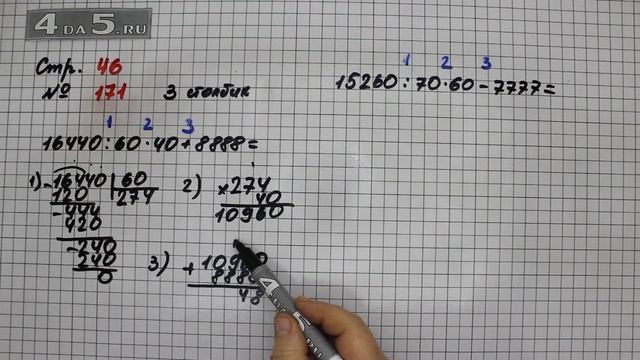 4DA5.RU
Стр. 46
№ 171 3 столбик
1 2 3
16440:60·40+8888=
1) -16440 60
120 274
-444
420
-240
240
0
2) ×274
40
10960
3) +10960
8888
48
1 2 3
15260:70·60-7777=
4DA